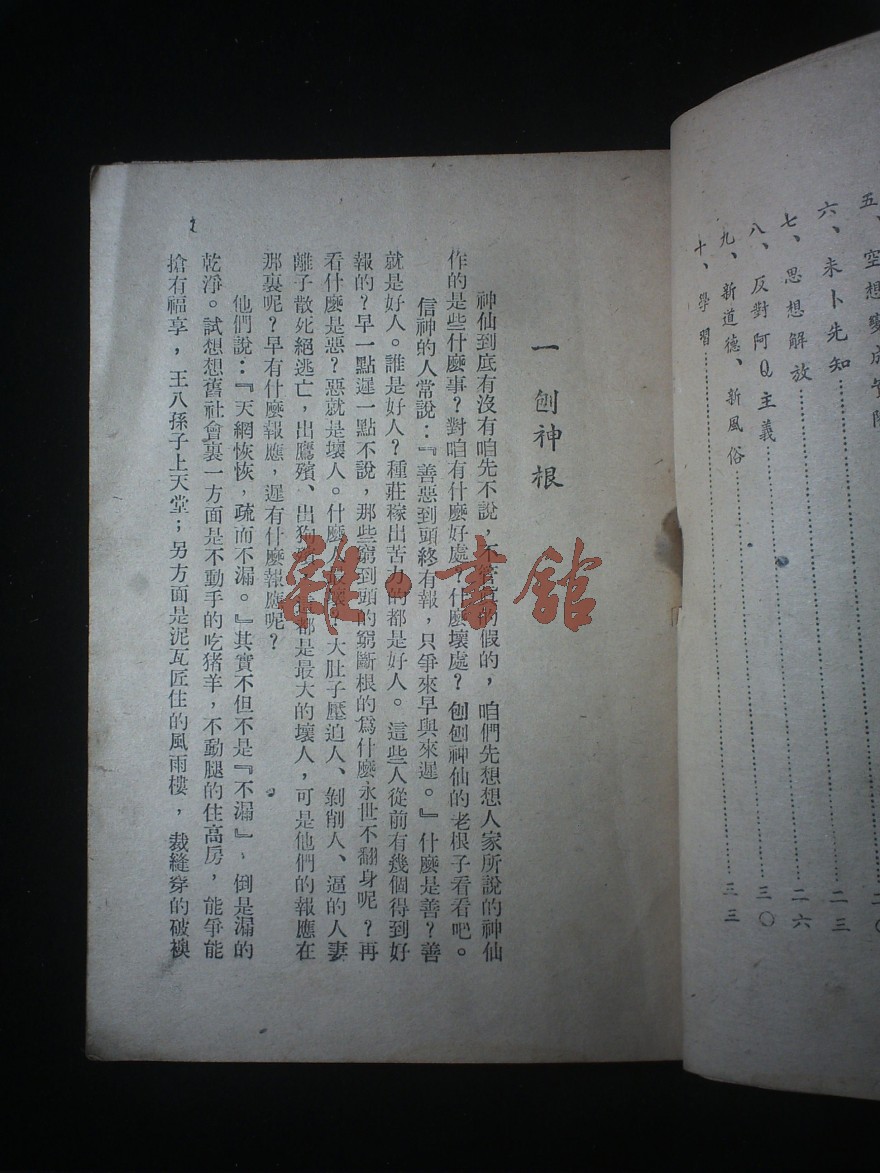 五、空想變成
六、未卜先知……二〇
七、思想解放……二三
八、反對阿Q主義……二六
九、新道德、新風俗……三〇
十、學習……三三
一 刨神根
神仙到底有沒有咱先不說，不管的假的，咱們先想想人家所說的神仙
作的是些什麼事？對咱有什麼好處？什麼壞處？刨刨神仙的老根子看看吧。
信神的人常說：『善惡到頭終有報，只爭來早與來遲。』什麼是善？善
就是好人。誰是好人？種莊稼出苦力的都是好人。這些人從前有幾個得到好
報的？早一點遲一點不說，那些窮到頭的窮斷根的爲什麼永世不翻身呢？再
看什麼是惡？惡就是壞人。什麼人最壞？大肚子壓迫人、剝削人、逼的人妻
離子散死絕逃亡，出鷹殯、出狗都是最大的壞人，可是他們的報應在
那裏呢？早有什麼報應，遲有什麼報應呢？
他們說：『天網恢恢，疏而不漏。』其實不但不是『不漏』，倒是漏的
乾淨。試想想舊社會裏一方面是不動手的吃猪羊，不動腿的住高房，能爭能
搶有福享，王八孫子上天堂；另方面是泥瓦匠住的風雨樓，裁縫穿的破襖
雜·書館